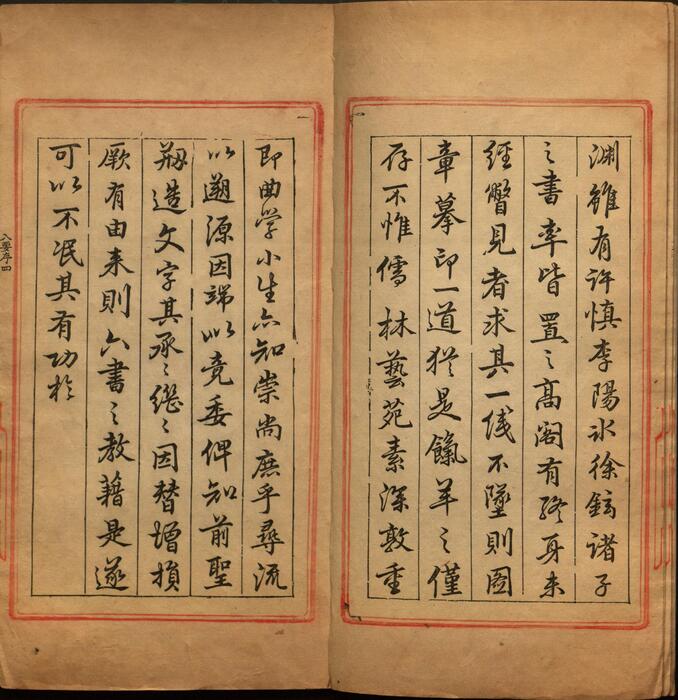 淵雖有許慎李陽氷徐鉉諸子
之書率皆置之高閣有終身未
經瞥見者求其一线不墜則圖
章摹印一道猶是餼羊之僅
存不惟儒林藝苑素深敦重
即曲学小生亦知崇尚庶乎尋流
以遡源因端以竟委俾知前聖
剏造文字其承之繼之因替增損
厥有由来則六書之教藉是遂
可以不泯其有功於
八要序四